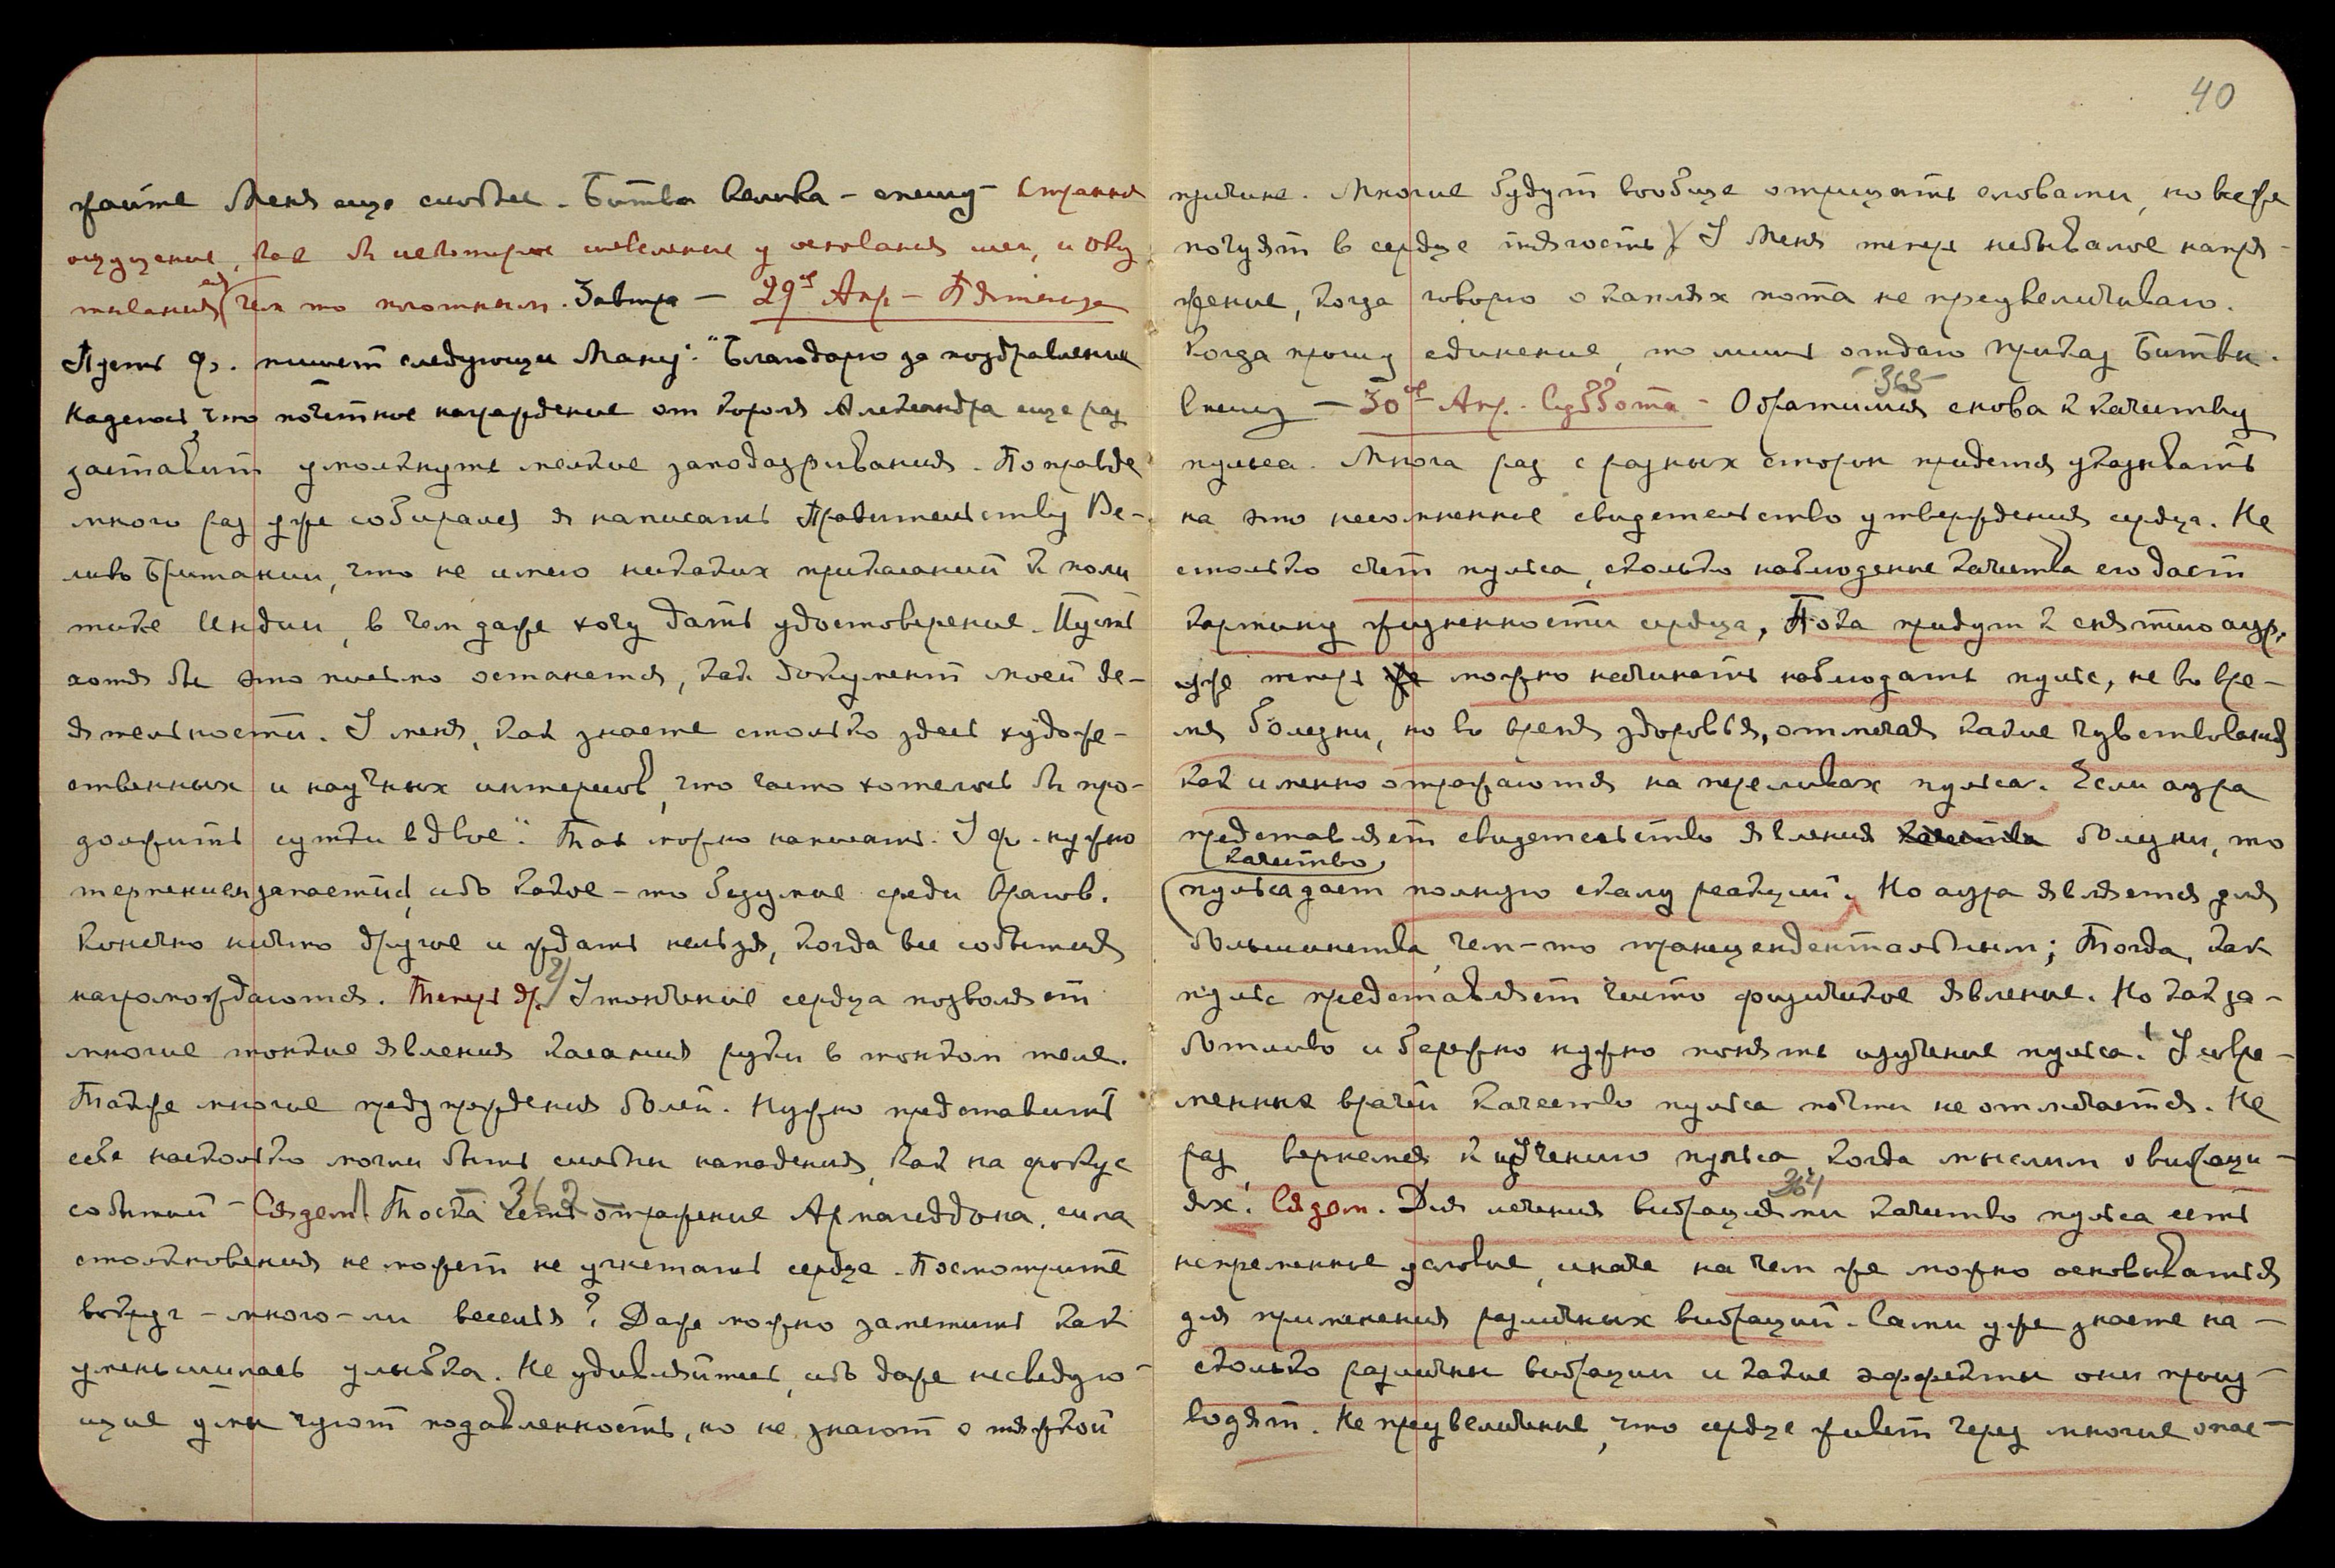 жайте Меня еще сильнее. Битва велика – спешу – Странное
ощущение, как бы некоторое шевеление у основания шеи, и оку
тывания чем то плотным. Завтра – 29ое Апр – Пятница
Пусть Ф. пишет следующееМану: "Благодарю за поздравление
Надеюсь, что почетное награждение от Короля Александра еще раз
заставит умолкнуть мелкие заподазривания. По правде
много раз уже собирался я написать Правительству Ве-
лико Британии, что не имею никаких прикасаний к поли
тике Индии, в чем даже хочу дать удостоверение. Пусть
хотя бы это письмо останется, как документ моей де-
ятельности. У меня, как знаете столько здесь художе-
ственных и научных интересов, что часто хотелось бы про-
должить сутки вдвое". Так можно написать. У Ф. нужно
терпением запастись, ибо какое-то безумие среди врагов.
Конечно ничто другое и ждать нельзя, когда все события
нагромождаются. Теперь др. Утончение сердца позволяет
многие тонкие явления касания руки в тонком теле.
Также многие предупреждения болей. Нужно представить
себе насколько могли быть сильны нападения, как на фокус
событий – Сядем Тоска 362 есть отражение Армагеддона, сила
столкновения не может не угнетать сердце. Посмотрите
вокруг – много-ли веселья? Даже можно заметить как
уменьшилась улыбка. Не удивляйтесь, ибо даже несведую-
щие умы чуют подавленность, но не знают о тяжкой
40
причине. Многие будут вообще отрицать словами, но все же
почуят в сердце тягость. У Меня теперь небывалое напря-
жение, когда говорю о каплях пота не преувеличиваю.
Когда прошу единение, то лишь отдаю приказ Битвы.
Спешу – 30ое Апр. Суббота – 363 Обратимся снова к качеству
пульса. Много раз с разных сторон придется указывать
на это несомненное свидетельство утверждения сердца. Не
столько счет пульса, сколько наблюдение качества его даст
картину жизненности сердца, Пока придут к снятию аур,
уже теперь можно начинать наблюдать пульс, не во вре-
мя болезни, но во время здоровья, отмечая какие чувствования
как именно отражаются на переливах пульса. Если аура
представляет свидетельство явления болезни, то
качество
пульса дает полную скалу реакций. Но аура является для
большинства, чем-то трансцендентальным; Тогда, как
пульс представляет чисто физическое явление. Но как за-
ботливо и бережно нужно понять изучение пульса! У совре-
менных врачей качество пульса почти не отмечается. Не
раз, вернемся к изучению пульса, когда мыслим о вибраци-
ях! Сядем. 364 Для лечения вибрациями качество пульса есть
непременное условие, иначе на чем же можно основываться
для применения различных вибраций. Сами уже знаете на-
сколько различны вибрации и какие эффекты они произ-
водят. Не преувеличение, что сердце живет через многие опас-